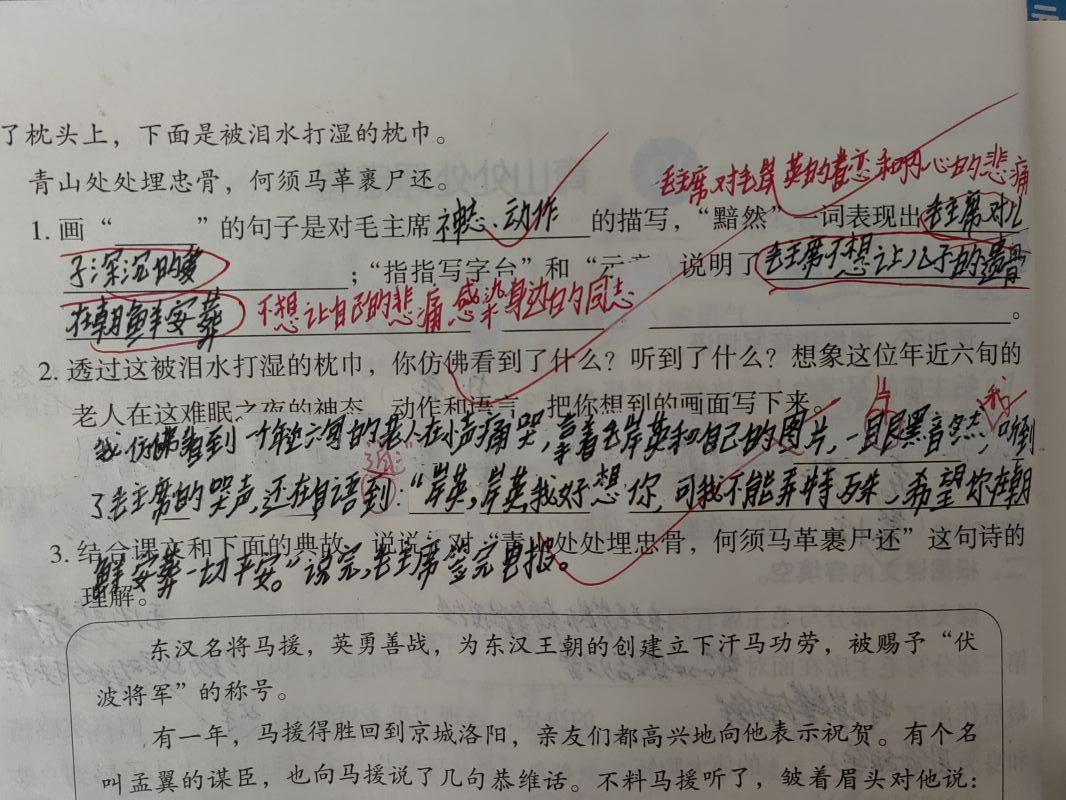 了枕头上，下面是被泪水打湿的枕巾。
青山处处埋忠骨，何须马革裹尸还。
毛主席对毛岸英的眷恋和内心的悲痛
1. 画“      ”的句子是对毛主席神态、动作的描写，“黯然”一词表现出毛主席对儿
子深沉的爱；“指指写字台”和“示意 说明了毛主席不想让儿子的遗骨
在朝鲜安葬 不想让自己的悲痛感染身边的同志。
2. 透过这被泪水打湿的枕巾，你仿佛看到了什么？听到了什么？想象这位年近六旬的
老人在这难眠之夜的神态、动作和语言，把你想到的画面写下来。
我仿佛看到一个年近六旬的老人在小声痛哭，拿着毛岸英和自己的图片，一目艮黑音然，听到
片 我
近
了毛主席的哭声，还在自语到：“岸英，岸英我好想你，可我不能弄特 希望你在朝
3. 结合课文和下面的典故，说说：对“青山处处埋忠骨，何须马革裹尸还”这句诗的
鲜安葬一切平安。”说完，毛主席签完电报。
理解。
东汉名将马援，英勇善战，为东汉王朝的创建立下汗马功劳，被赐予“伏
波将军”的称号。
有一年，马援得胜回到京城洛阳，亲友们都高兴地向他表示祝贺。有个名
叫孟翼的谋臣，也向马援说了几句恭维话。不料马援听了，皱着眉头对他说：